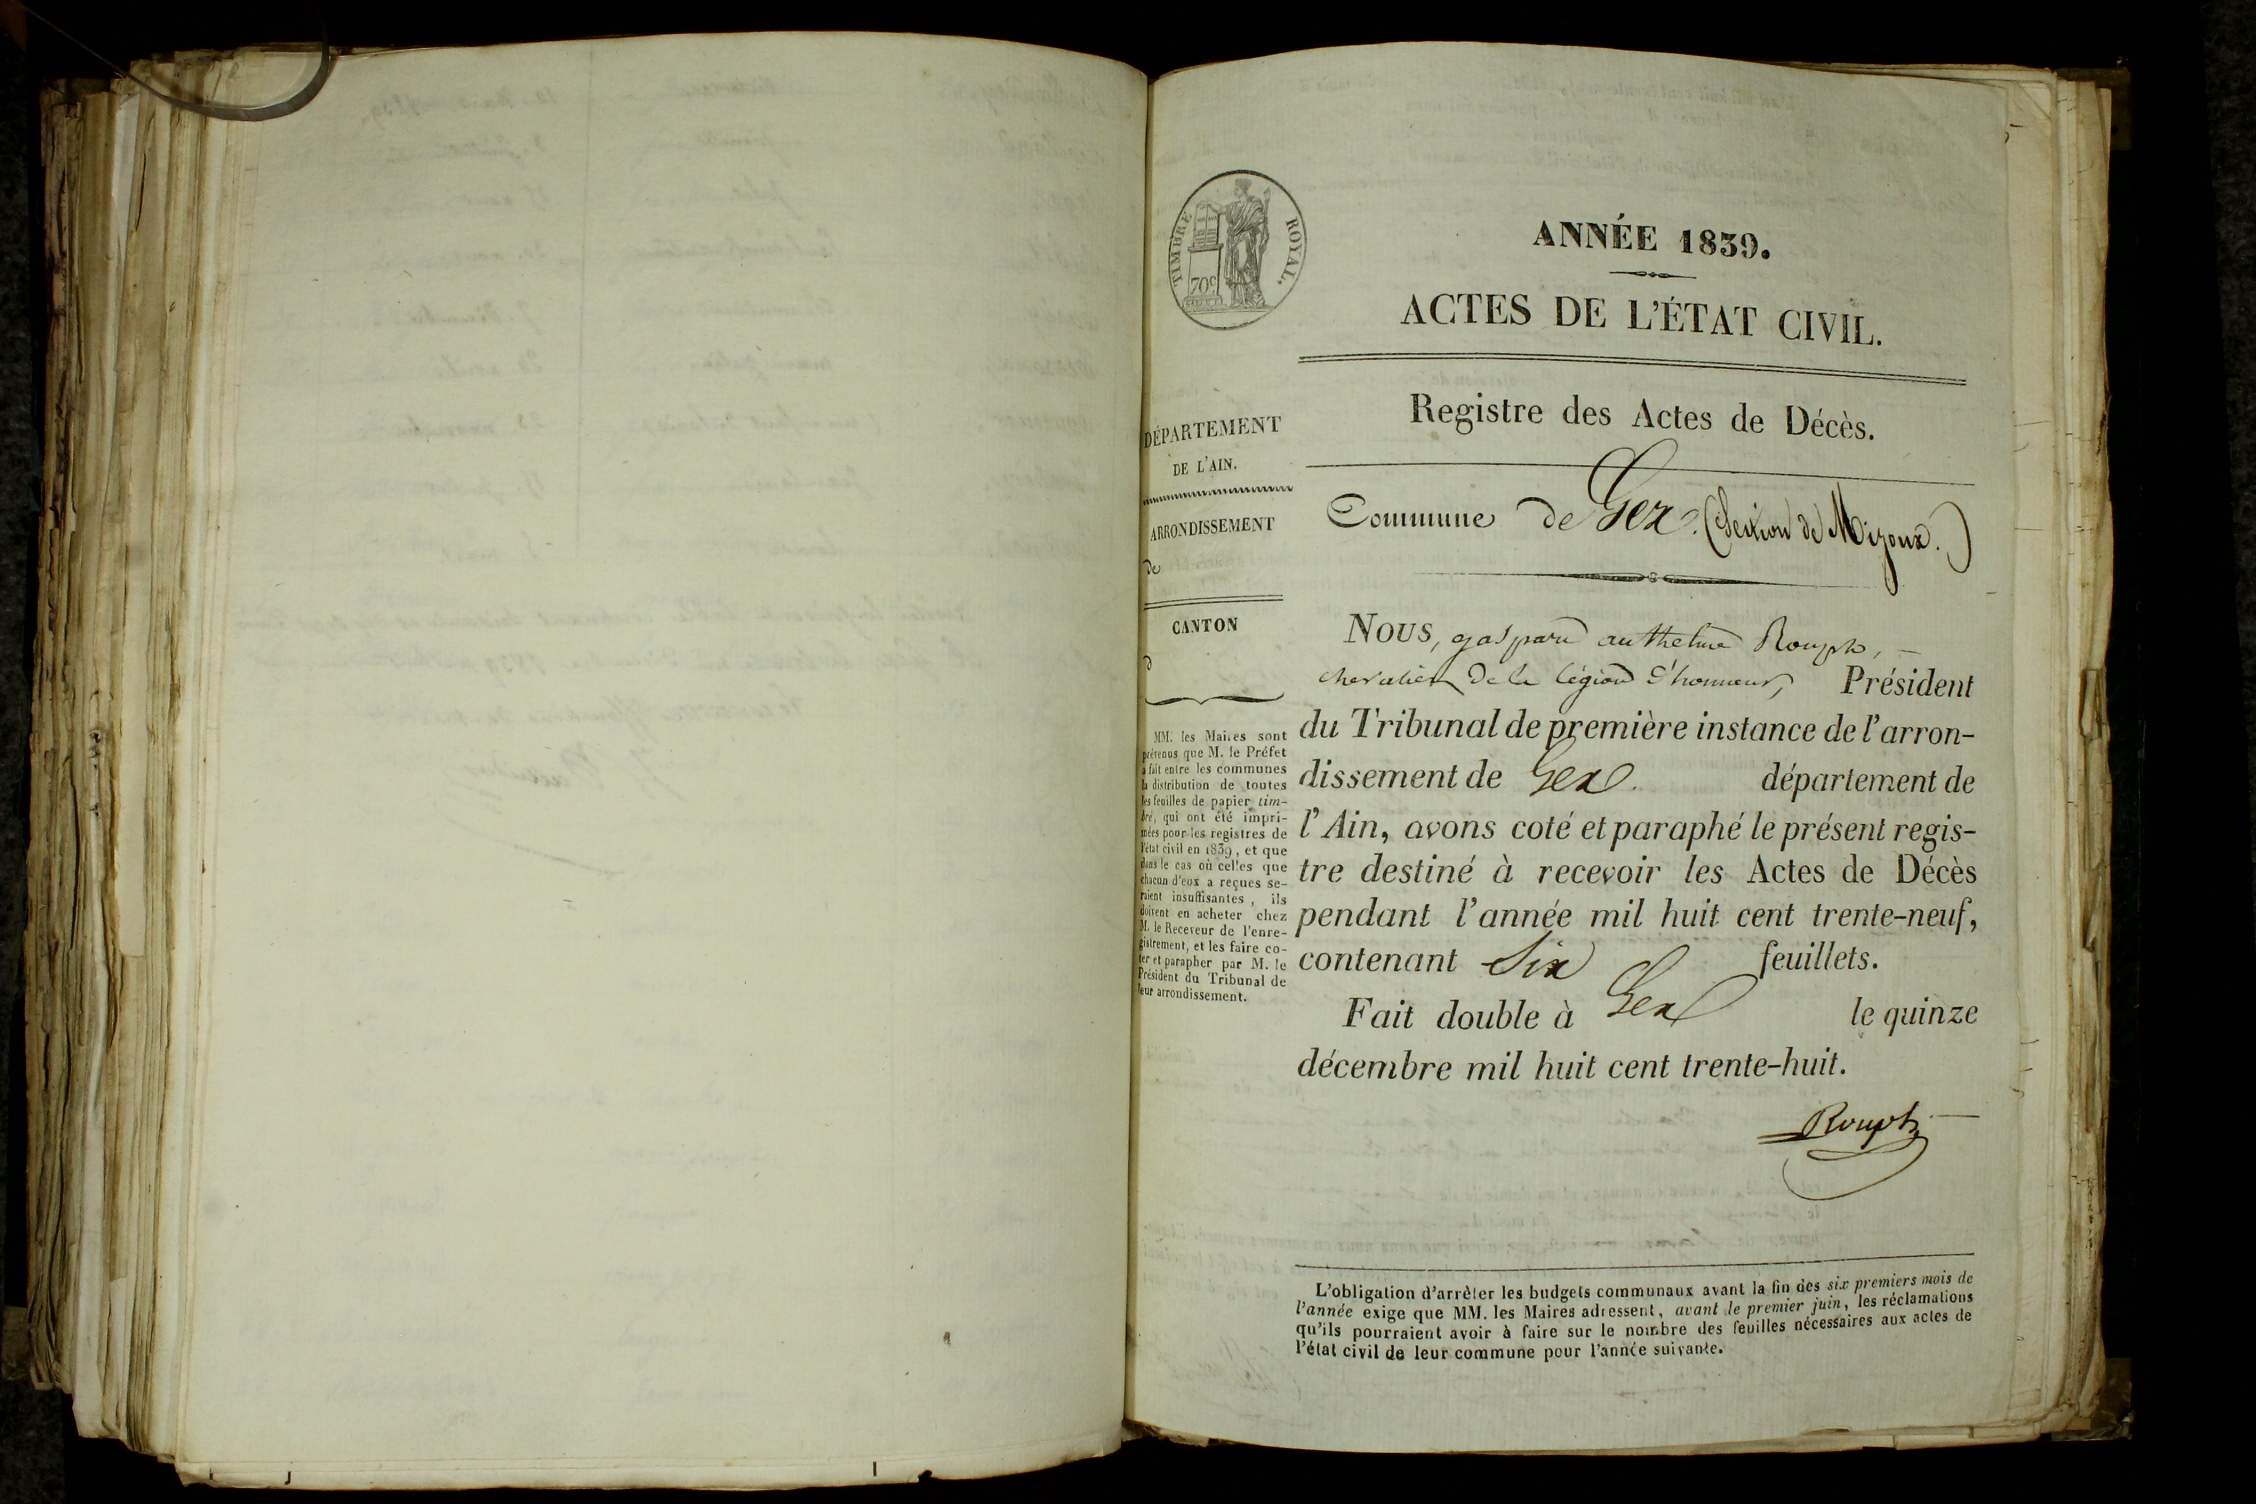 TIMBRE ROYAL.
70c
ANNÉE 1839.
ACTES DE L'ÉTAT CIVIL.
Registre des Actes de Décès.
Commune de Gex. (Section de Mijoux.)
DÉPARTEMENT
DE L'AIN.
ARRONDISSEMENT
de
CANTON
d
MM. les Maires sont
prévenus que M. le Préfet
a fait entre les communes
la distribution de toutes
les feuilles de papier tim-
bré, qui ont été impri-
mées pour les registres de
l'état civil en 1839, et que
dans le cas où celles que
chacun d'eux a reçues se-
raient insuffisantes, ils
doivent en acheter chez
M. le Receveur de l'enre-
gistrement, et les faire co-
ter et parapher par M. le
Président du Tribunal de
leur arrondissement.
NOUS, gaspard anthelme Rouph,
chevalier de la légion d'honneur, Président
du Tribunal de première instance de l'arron-
dissement de Gex. département de
l'Ain, avons coté et paraphé le présent regis-
tre destiné à recevoir les Actes de Décès
pendant l'année mil huit cent trente-neuf,
contenant Six feuillets.
Fait double à Gex le quinze
décembre mil huit cent trente-huit.
Rouph
L'obligation d'arrêter les budgets communaux avant la fin des six premiers mois de
l'année exige que MM. les Maires adressent, avant le premier juin, les réclamations
qu'ils pourraient avoir à faire sur le nombre des feuilles nécessaires aux actes de
l'état civil de leur commune pour l'année suivante.